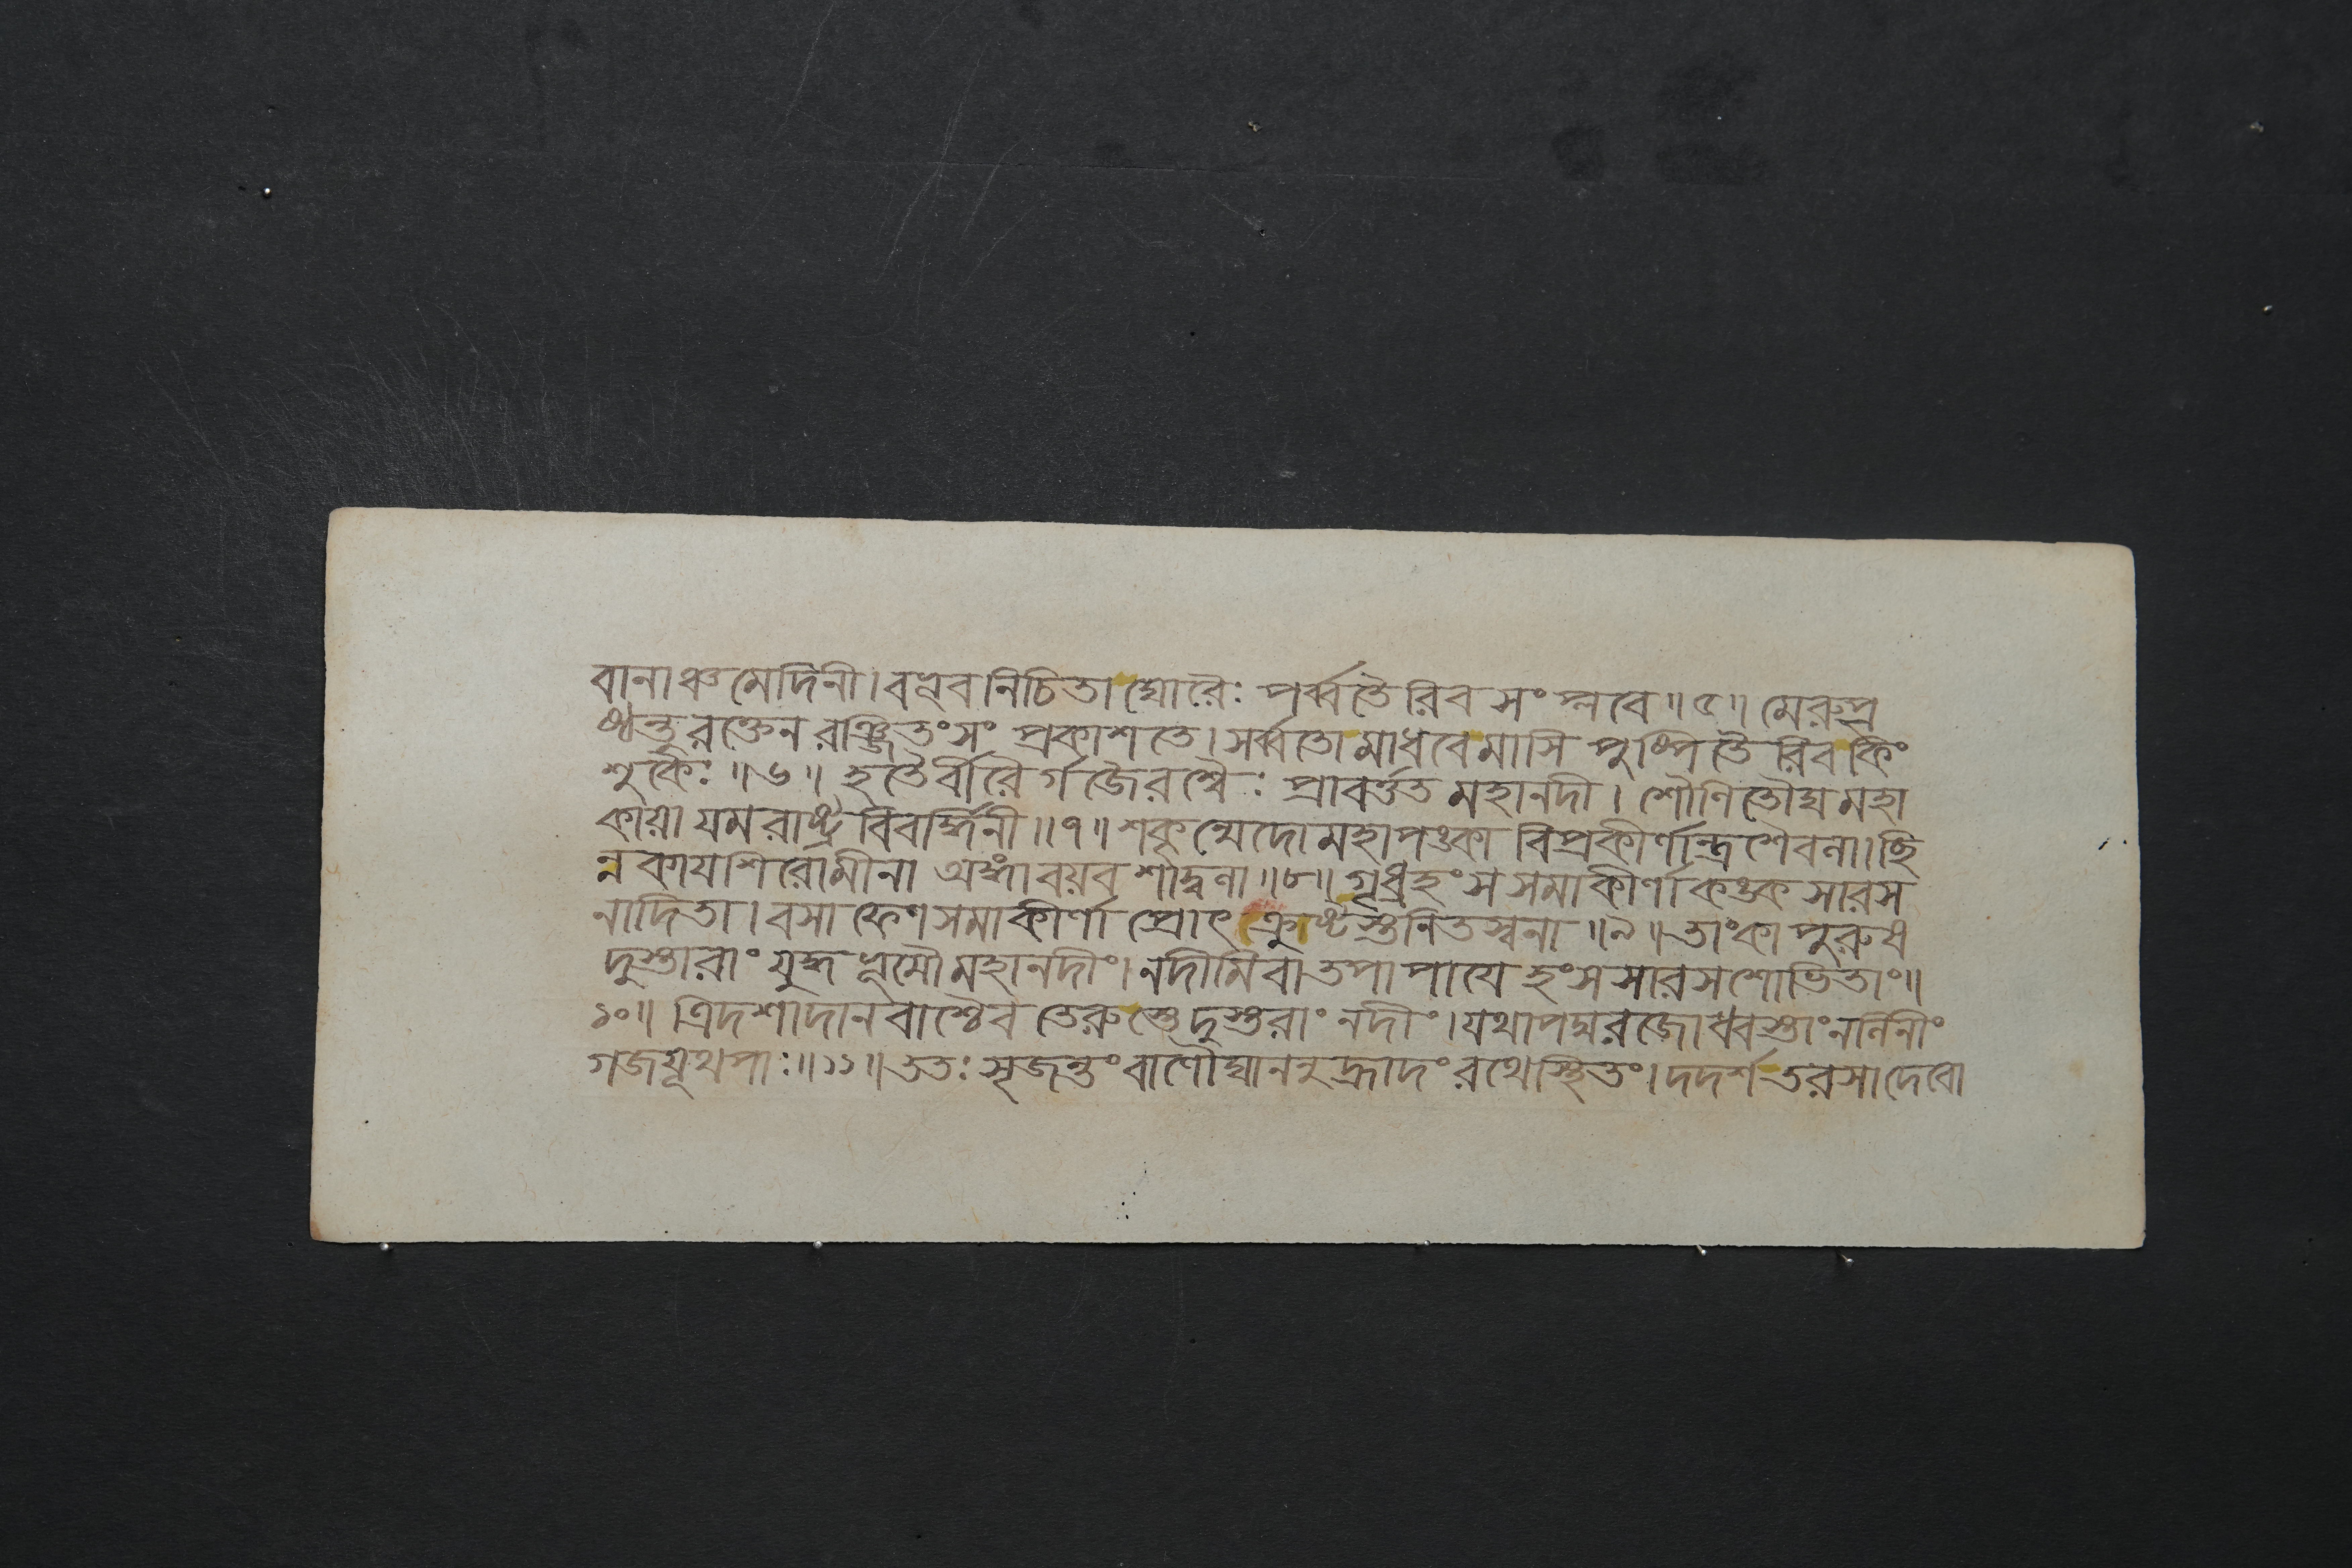 বানাঞ্চ মেদিনী। বভূব নিচিতা ঘোরৈঃ পর্ব্বতৈরিব সংপ্লবে॥৫॥ মেরুপ্র
স্থন্তু রক্তেন রঞ্জিতং সংপ্রকাশতে। সর্ব্বতো মাধবে মাসি পুষ্পিতৈরিব কিং
শুকৈঃ॥৬॥ হতৈর্বীরৈর্গজৈরশ্বৈঃ প্রাবর্ত্তত মহানদী। শৌণিতৌঘ মহা
কায়া যমরাষ্ট্র বিবর্দ্ধিনী॥৭॥ শকৃন্মেদো মহাপঙ্কা বিপ্রকীর্ণান্ত্র শৈবনা। ছি
ন্ন কায়শিরোমীনা অঙ্গাবয়ব শাদ্বনা॥৮॥ গৃধ্রহংস সমাকীর্ণা কঙ্ক সারস
নাদিতা। বসা ফেণসমাকীর্ণা প্রোৎক্রুষ্টস্তনিতস্বনা॥৯॥ তাং কাপুরুষ
দুস্তারাং যুদ্ধভূমৌ মহানদীং। নদীমিবাতপাপায়ে হংসসারসশোভিতাং॥
১০॥ ত্রিদশাদানবাশ্চৈব তেরুস্তে দুস্তরাং নদীং। যথা পদ্মরজোধ্বস্তাং নলিনীং
গজযূথপাঃ॥১১॥ ততঃ সৃজন্তং বাণৌঘাননুহ্রাদং রথে স্থিতং। দদর্শ তরসা দেবো